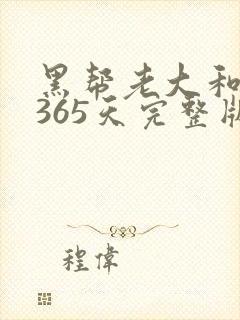 黑帮老大和
365天完整版
程偉